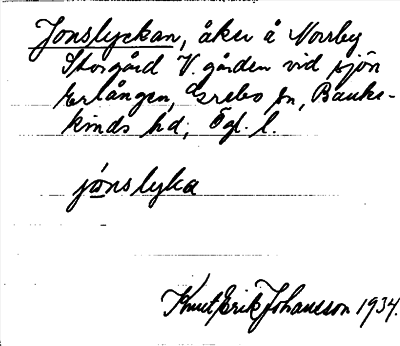 Jonslyckan, åker å Norrby
Storgård V. gården vid sjön
Erlången, Örebo sn, Banke-
kinds hd, Ögl. l.
jónslyka
Knut Erik Johansson 1934.